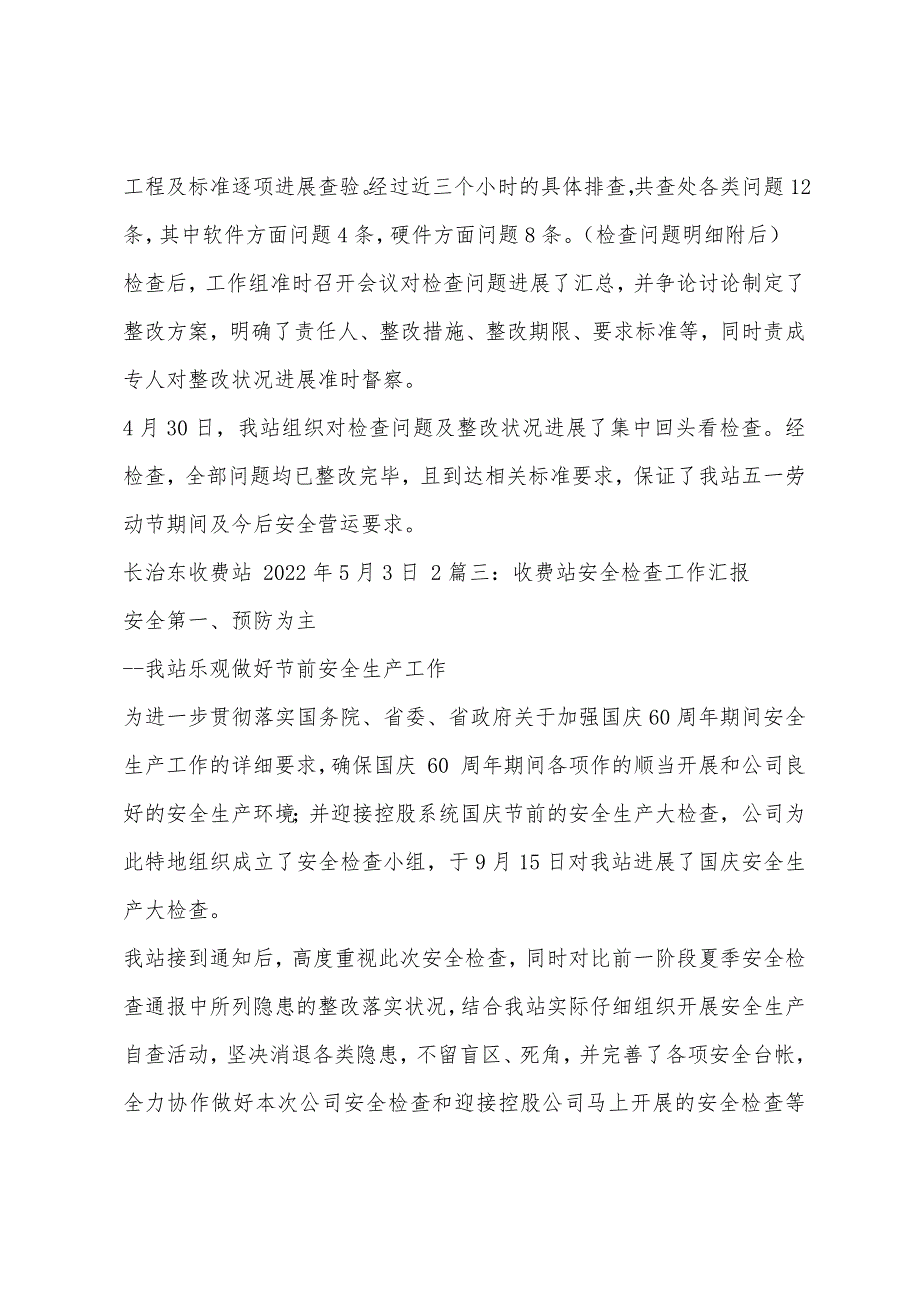 工程及标准逐项进展查验。经过近三个小时的具体排查，共查处各类问题 12
条，其中软件方面问题 4 条，硬件方面问题 8 条。（检查问题明细附后）
检查后，工作组准时召开会议对检查问题进展了汇总，并争论讨论制定了
整改方案，明确了责任人、整改措施、整改期限、要求标准等，同时责成
专人对整改状况进展准时督察。
4 月 30 日，我站组织对检查问题及整改状况进展了集中回头看检查。经
检查，全部问题均已整改完毕，且到达相关标准要求，保证了我站五一劳
动节期间及今后安全营运要求。
长治东收费站 2022 年 5 月 3 日 2 篇三：收费站安全检查工作汇报
安全第一、预防为主
--我站乐观做好节前安全生产工作
为进一步贯彻落实国务院、省委、省政府关于加强国庆 60 周年期间安全
生产工作的详细要求，确保国庆 60 周年期间各项作的顺当开展和公司良
好的安全生产环境；并迎接控股系统国庆节前的安全生产大检查，公司为
此特地组织成立了安全检查小组，于 9 月 15 日对我站进展了国庆安全生
产大检查。
我站接到通知后，高度重视此次安全检查，同时对比前一阶段夏季安全检
查通报中所列隐患的整改落实状况，结合我站实际仔细组织开展安全生产
自查活动，坚决消退各类隐患，不留盲区、死角，并完善了各项安全台帐，
全力协作做好本次公司安全检查和迎接控股公司马上开展的安全检查等